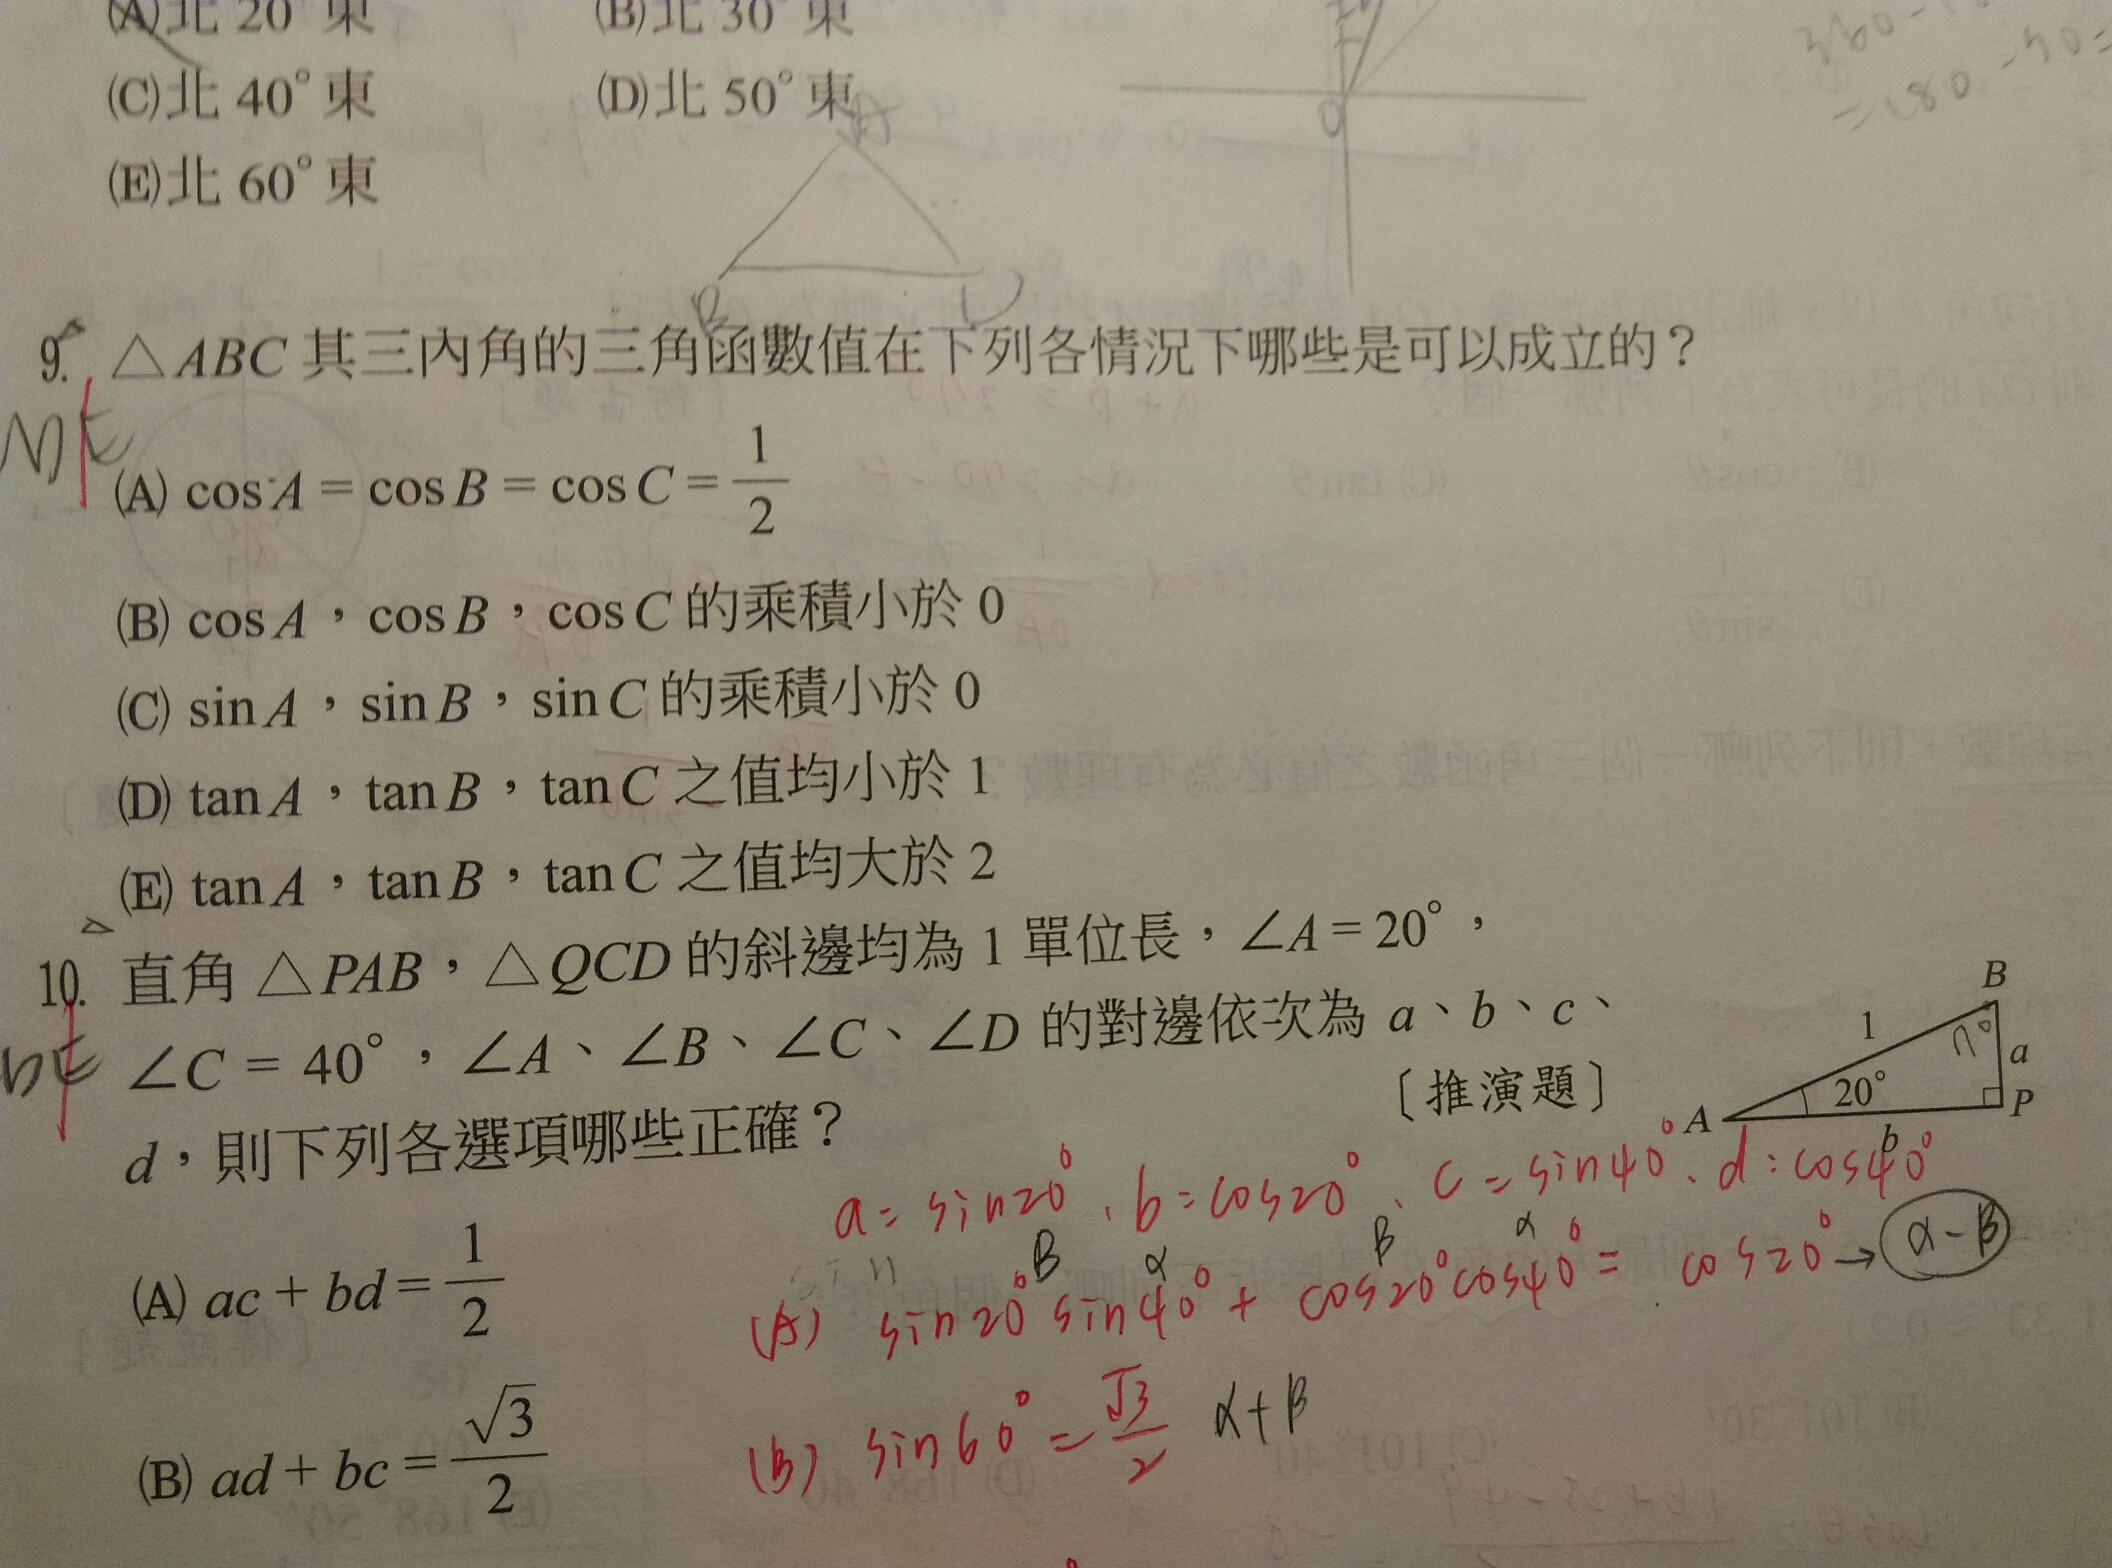 (A)北 20° 東 (B)北 30° 東
(C)北 40° 東 (D)北 50° 東
(E)北 60° 東
O
360-
=180-70=
9. △ABC 其三內角的三角函數值在下列各情況下哪些是可以成立的？
(A) cos A = cos B = cos C = 1/2
(B) cos A，cos B，cos C 的乘積小於 0
(C) sin A，sin B，sin C 的乘積小於 0
(D) tan A，tan B，tan C 之值均小於 1
(E) tan A，tan B，tan C 之值均大於 2
10. 直角 △PAB，△QCD 的斜邊均為 1 單位長，∠A = 20°，
∠C = 40°，∠A、∠B、∠C、∠D 的對邊依次為 a、b、c、
d，則下列各選項哪些正確？ 〔推演題〕
B
1
a
20°
A
P
b
a = sin20°、b = cos20°、c = sin40°、d = cos40°
(A) ac + bd = 1/2
β α β α
(A) sin20° sin40° + cos20° cos40° = cos20° → α-β
(B) ad + bc = √3/2
(B) sin60° = √3/2 α+β